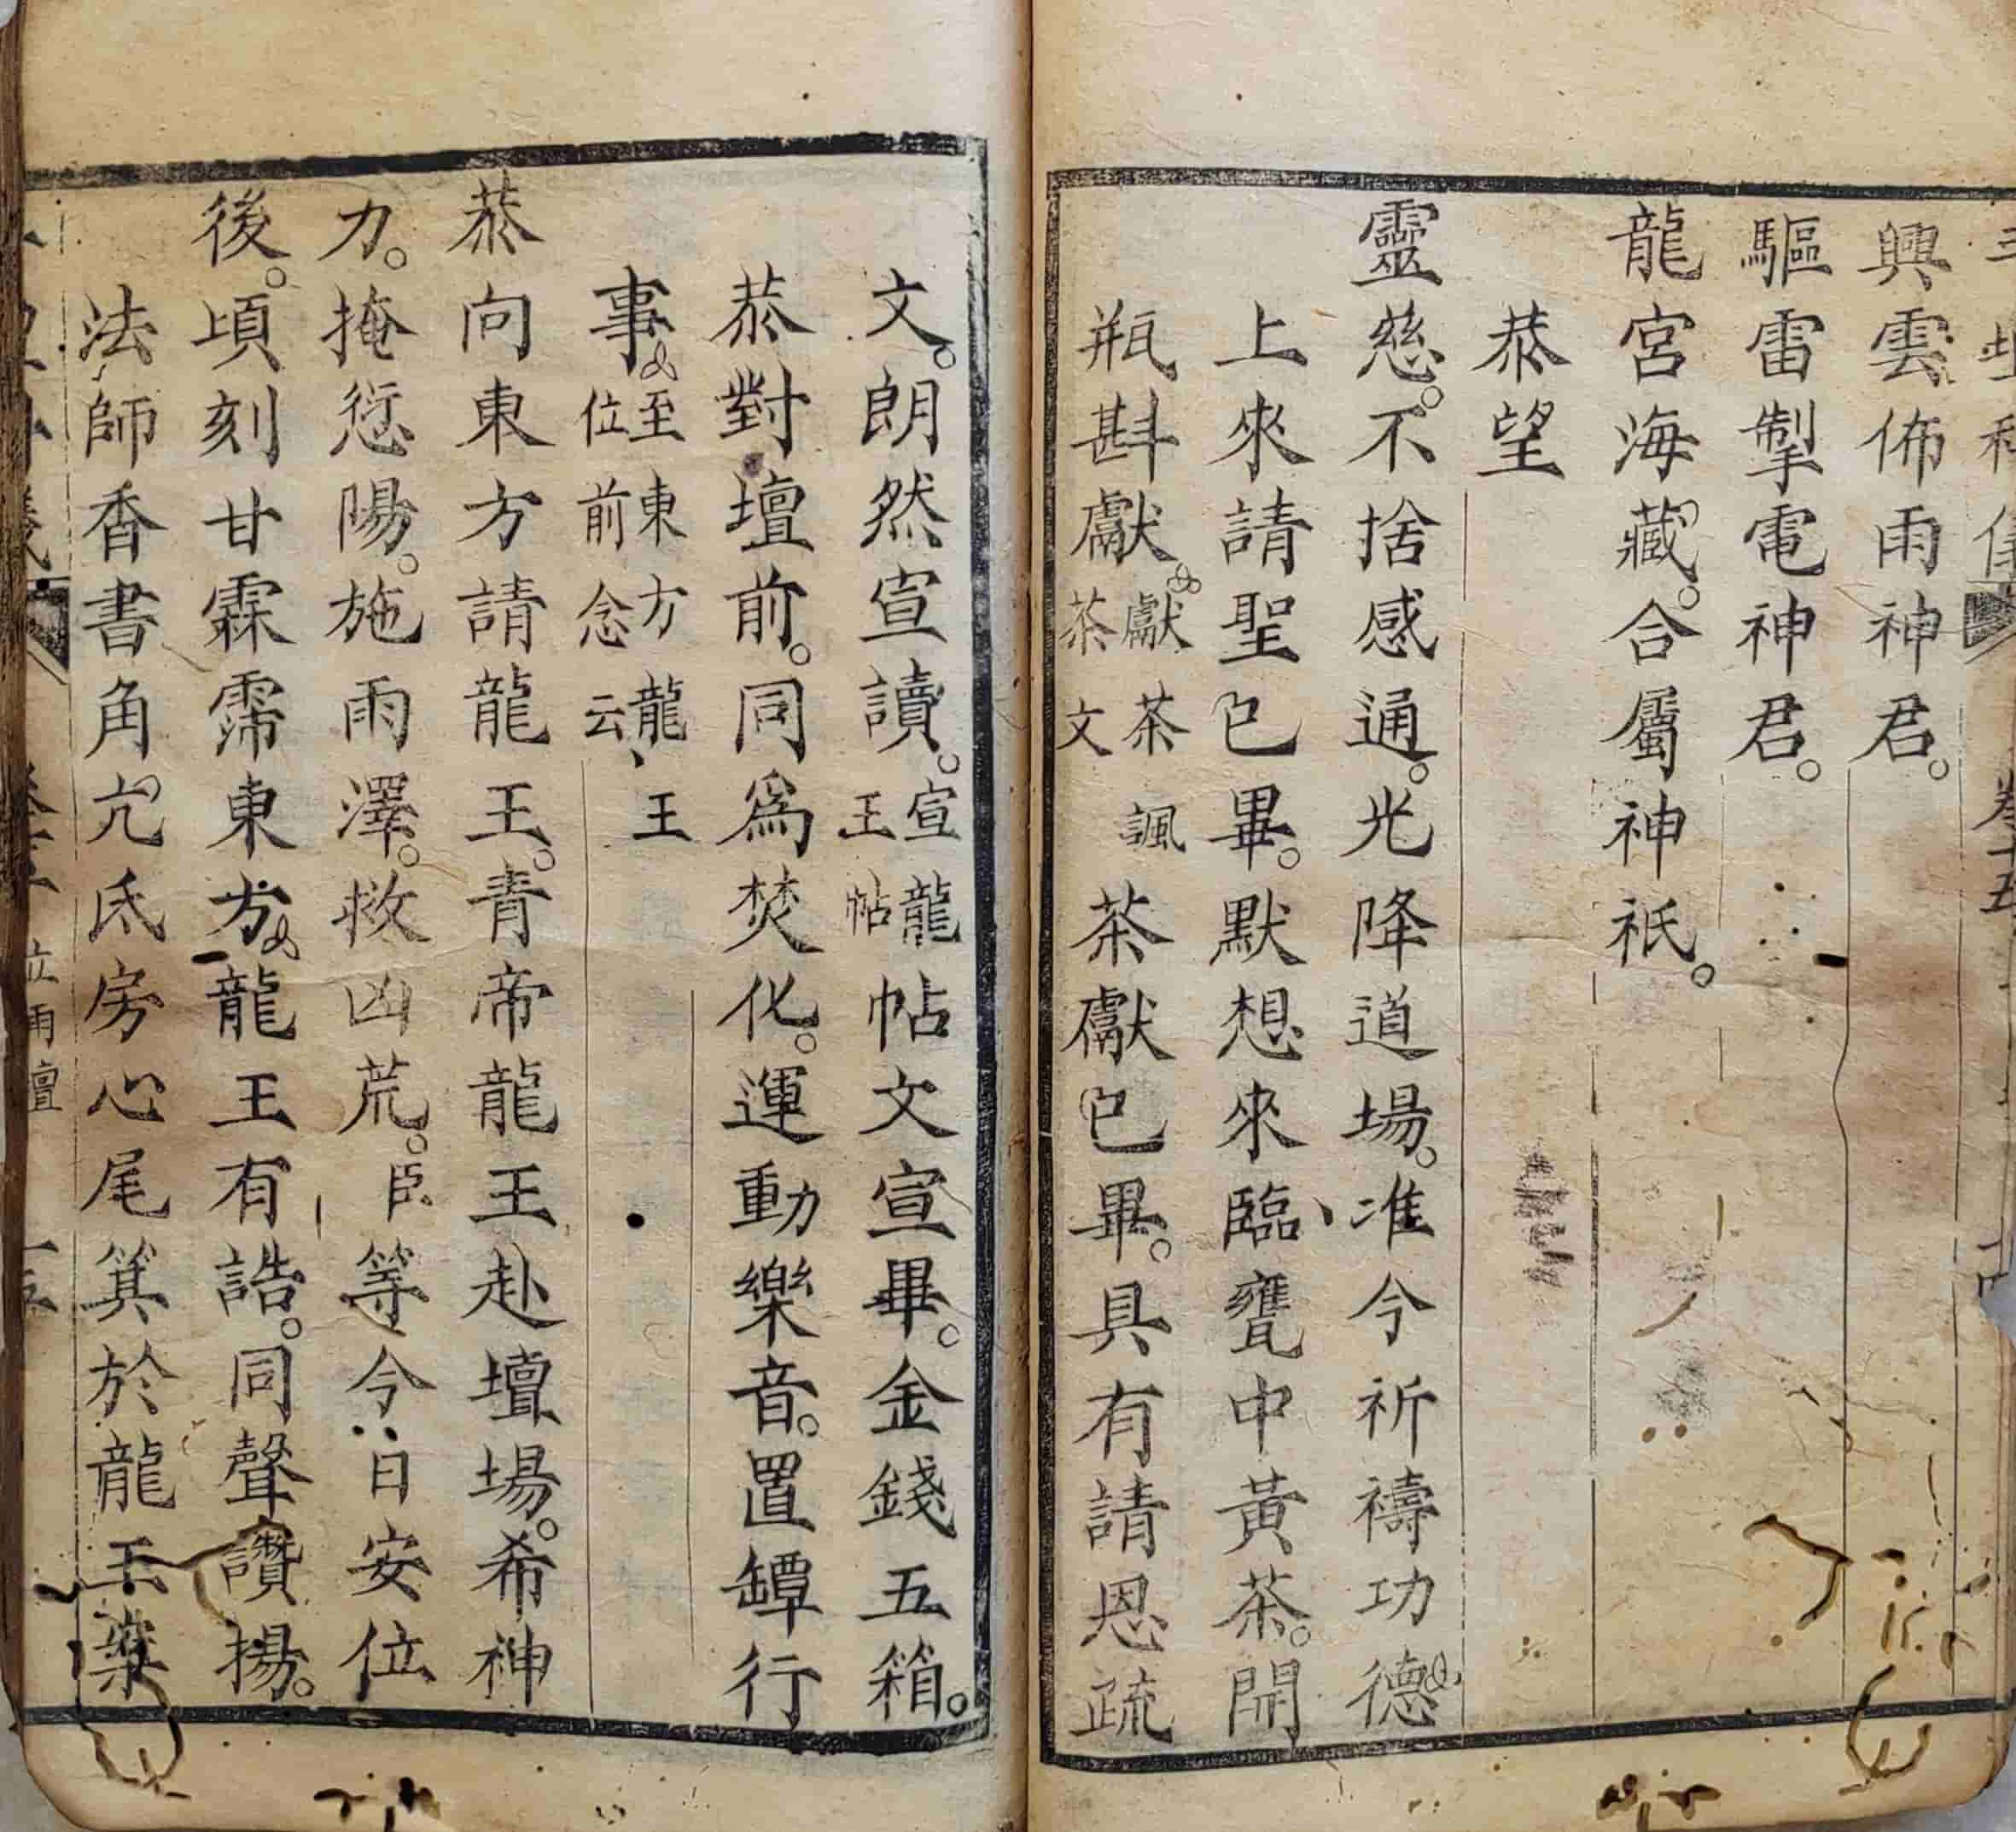 興雲佈雨神君。
驅雷掣電神君。
龍宮海藏。合屬神祇。
恭望
靈慈。不捨感通。光降道場。准今祈禱功德
上來請聖已畢。默想來臨甕中黃茶。開
瓶斟獻獻茶諷茶文茶獻已畢。具有請恩疏
文。朗然宣讀。宣龍王帖帖文宣畢。金錢五箱。
恭對壇前。同為焚化。運動樂音。置罈行
事至東方龍王位前念云
恭向東方請龍王。青帝龍王赴壇場。希神
力。掩愆陽。施雨澤。救凶荒。臣等今日安位
後。頃刻甘霖霈東方龍王有誥。同聲讚揚。
法師香書角亢氐房心尾箕於龍王案